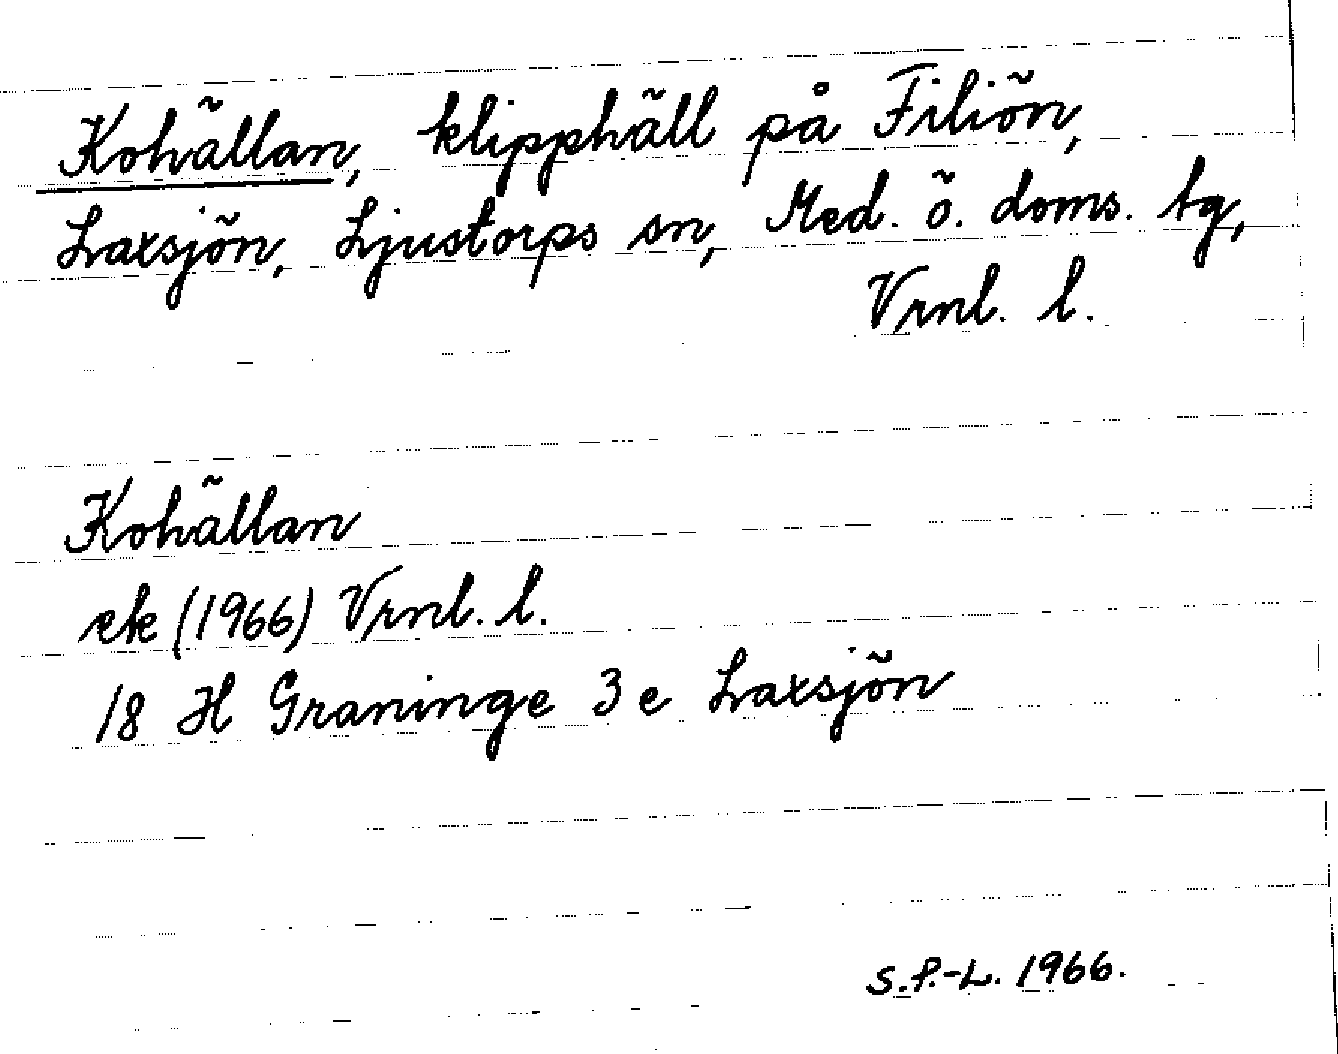 Kohällan, klipphäll på Filiön,
Laxsjön, Ljustorps sn, Med. ö. doms. tg,
Vrnl. l.
Kohällan
ek (1966) Vrnl. l.
18 H Graninge 3 e Laxsjön
S.P.-L. 1966.